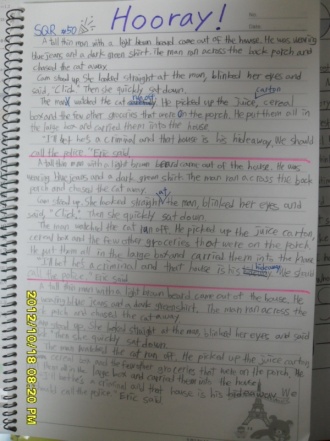 Hooray!
SQR #50
A tall thin man with a light brown beard came out of the house. He was wearing
blue jeans and a dark green shirt. The man ran across the back patch and
chased the cat away.
Cam stood up. She looked straight at the man, blinked her eyes and
said, "Click." Then she quickly sat down.
carton
The man watched the cat run off. He picked up the juice, cereal
box and the few other groceries that were on the porch. He put them all in
the large box and carried them into the house
"I'll bet he's a criminal and that house is his hideaway. We should
call the police." Eric said.
A tall thin man with a light brown beard came out of the house. He was
wearing blue jeans and a dark green shirt. The man ran across the back
patch and chased the cat away.
Cam stood up. She looked straight at the man, blinked her eyes and
said, "Click." Then she quickly sat down.
The man watched the cat run off. He picked up the juice carton,
cereal box and the few other groceries that were on the porch.
He put them all in the large box and carried them into the house
I'll bet he's a criminal and that house is his hideaway. We should
the police." Eric said.
tall thin man with a light brown beard came out of the house. He
wearing blue jeans and a dark green shirt. The man ran across the
patch and chased the cat away.
stood up. She looked straight at the man, blinked her eyes and said
Then she quickly sat down.
The man watched the cat run off. He picked up the juice carton
box and the few other groceries that were on the porch. He
them all in the large box and carried them into the house
he's a criminal and that house is his hideaway. We
should call the police." Eric said
2012/10/18 08:20 PM